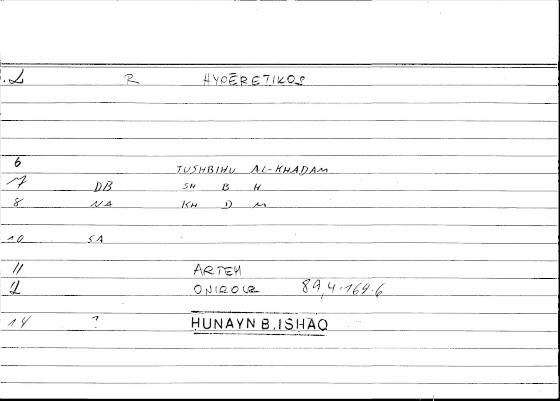 .2 R HYPĒRETIKOS
6 TUSHBIHU AL-KHADAM
7 DB SH B H
8 NA KH D M
10 SA
11 ARTEM
2 ONIROCR 89,4.164.6
14 ? HUNAYN B. ISHAQ